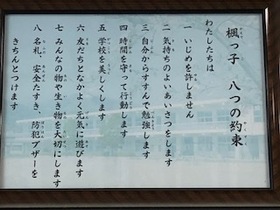 楓っ子 八つの約束
わたしたちは
一 いじめを許しません
二 気持ちのよいあいさつをします
三 自分からすすんで勉強します
四 時間を守って行動します
五 学校を美しくします
六 友だちとなかよく元気に遊びます
七 みんなの物や生き物を大切にします
八 名札、安全たすき、防犯ブザーを
きちんとつけます